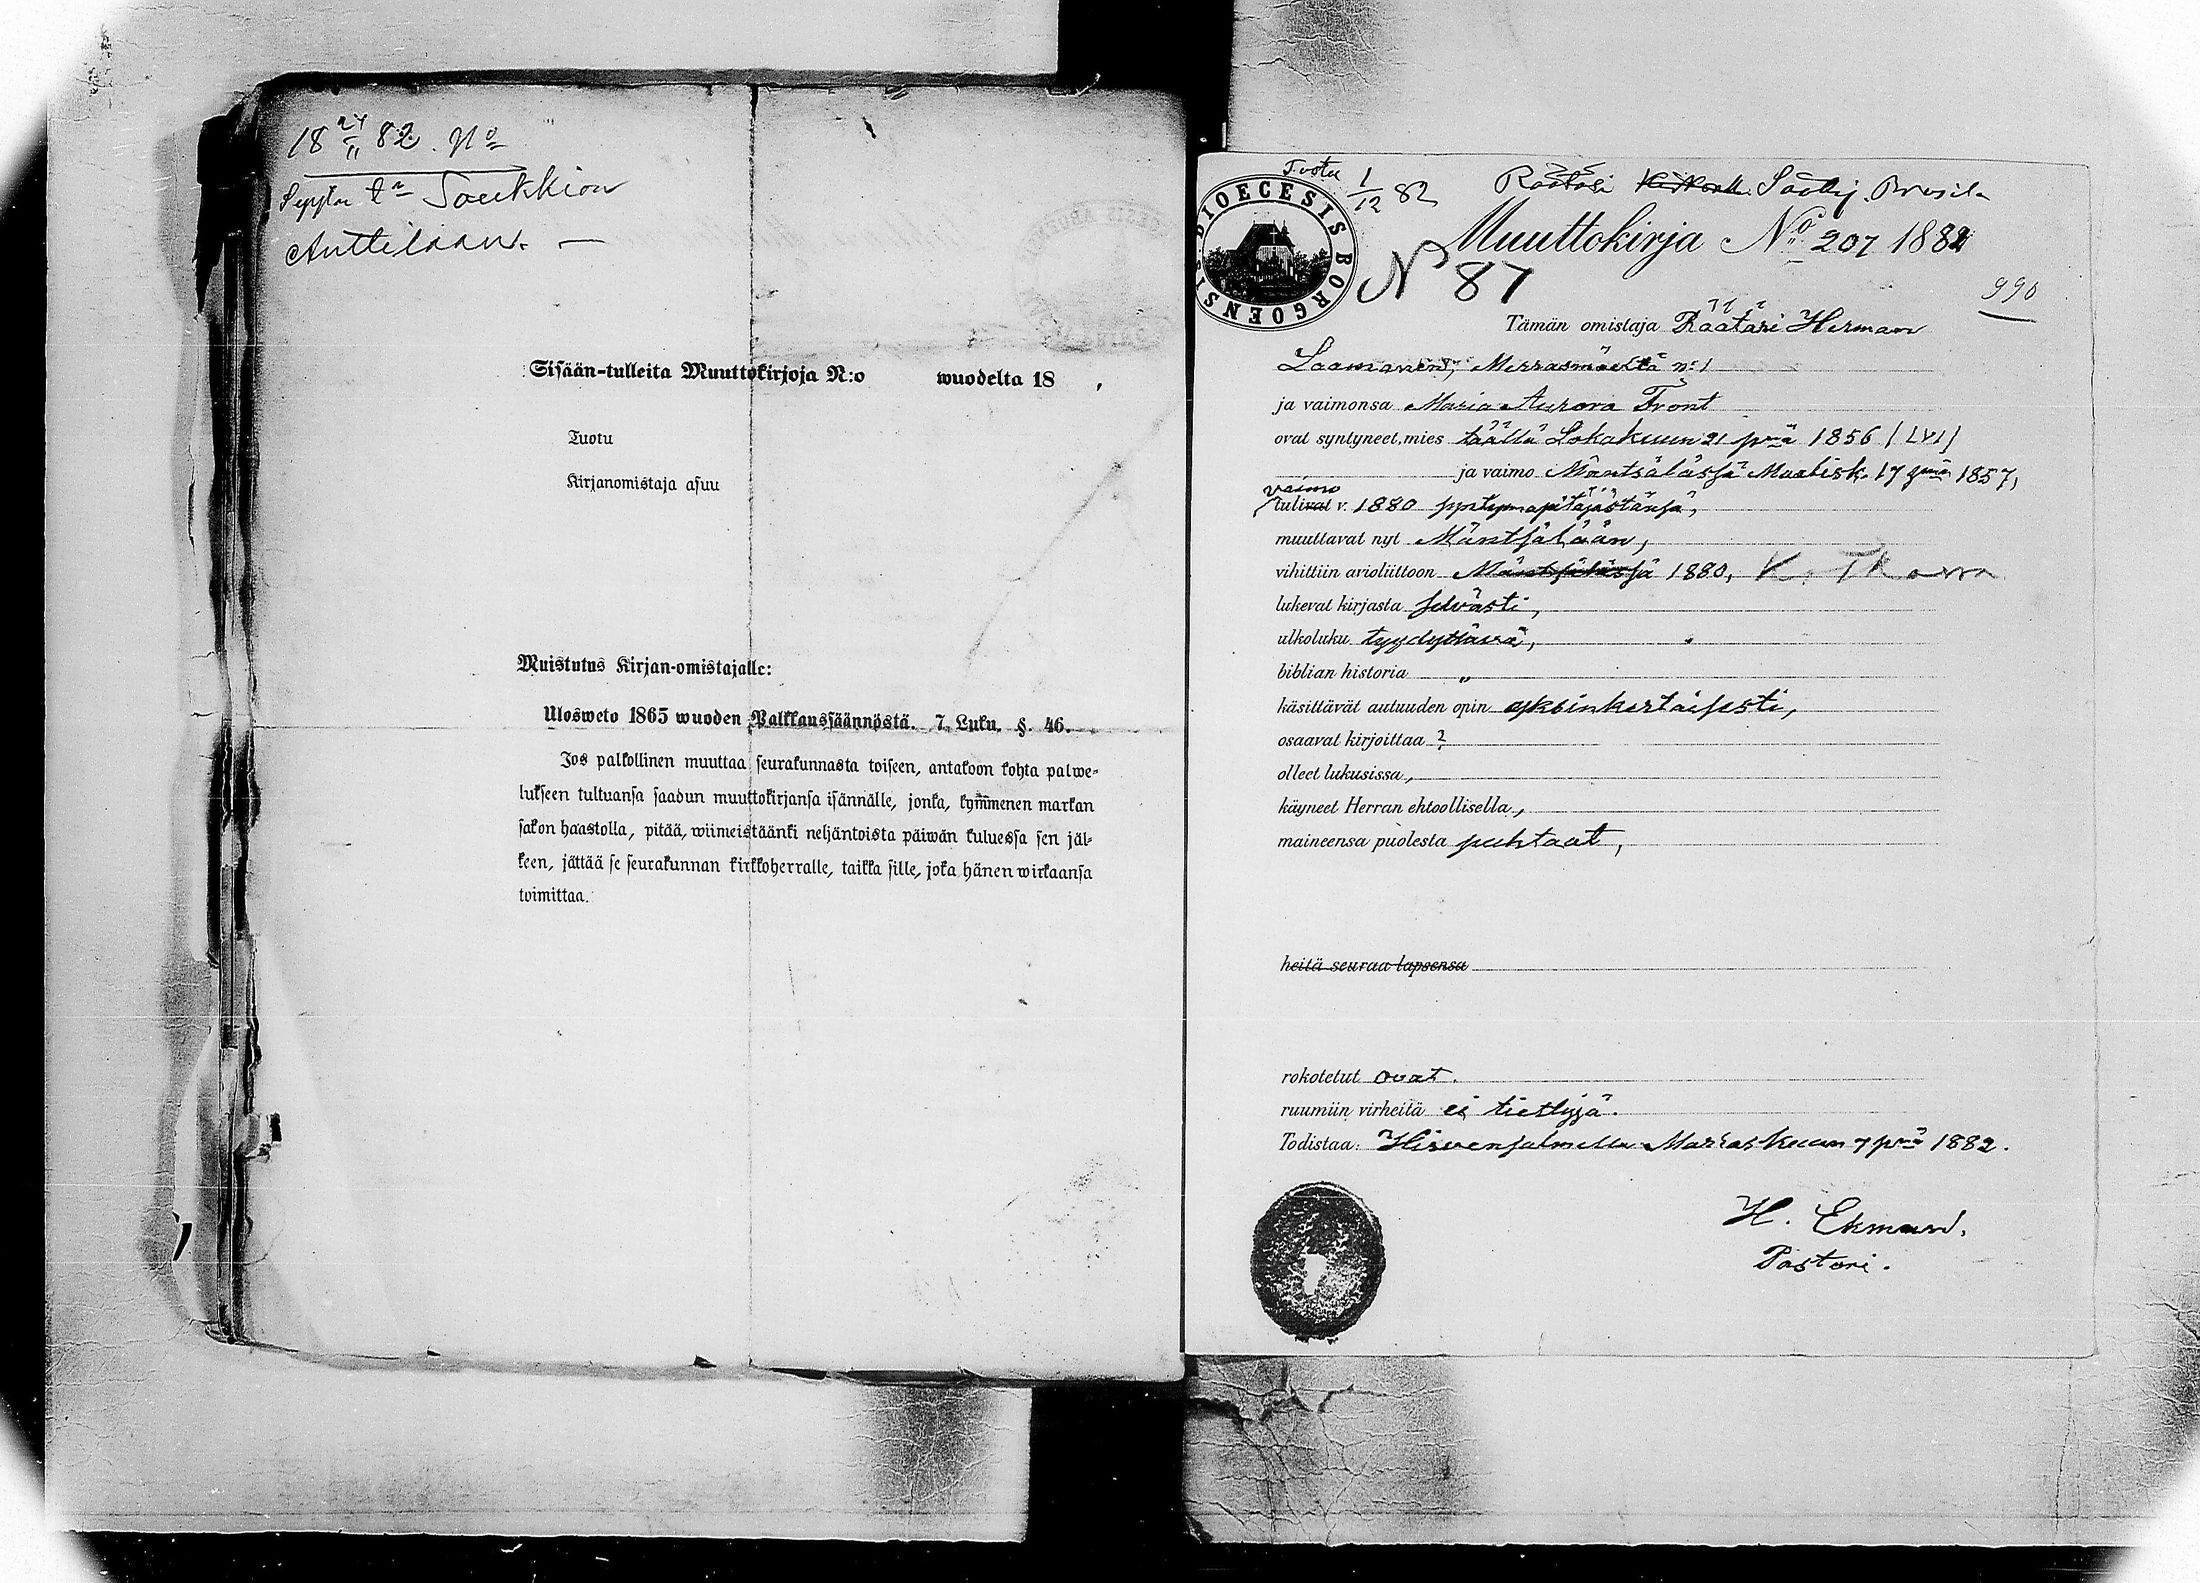 18 24/11 82. No
Seppä
Anttilaan. —
Sisään-tulleita Muuttokirjoja N:o wuodelta 18 ,
Tuotu
Kirjanomistaja asuu
Muistutus Kirjan-omistajalle:
Ulosweto 1865 wuoden Palkkaussäännöstä. 7. Luku. §. 46.
Jos palkollinen muuttaa seurakunnasta toiseen, antakoon kohta palwe-
lukseen tultuansa saadun muuttokirjansa isännälle, jonka, kymmenen markan
sakon haastolla, pitää, wiimeistäänki neljäntoista päiwän kuluessa sen jäl-
keen, jättää se seurakunnan kirkkoherralle, taikka sille, joka hänen wirkaansa
toimittaa.
Tuotu 1/12 82 Räätäli
DIOECESIS BORGOENSIS
Muuttokirja No 207 1882
N 87
990
Tämän omistaja Räätäri Herman
Laamanen, Merrasmäeltä n:1
ja vaimonsa Maria Aurora Front
ovat syntyneet, mies täällä Lokakuun 21 pnä 1856 (LVI)
ja vaimo Mäntsälässä Maalisk. 17 pnä 1857,
vaimo
tulivat v. 1880 syntymäpitäjästänsä,
muuttavat nyt Mäntsälään,
vihittiin avioliittoon Mäntsälässä 1880,
lukevat kirjasta selvästi,
ulkoluku tyydyttävä,
biblian historia "
käsittävät autuuden opin yksinkertaisesti,
osaavat kirjoittaa ?
olleet lukusissa,
käyneet Herran ehtoollisella,
maineensa puolesta puhtaat,
heitä seuraa lapsensa
rokotetut ovat.
ruumiin virheitä ei tiettyjä.
Todistaa: Hirvensalmella Marraskuun 7 pnä 1882.
H. Ekman.
Pastori.